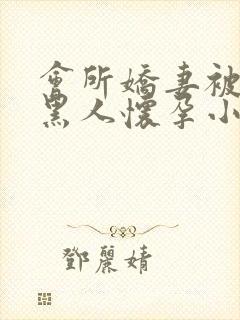 會所嬌妻被
黑人懷孕小
鄧麗婧